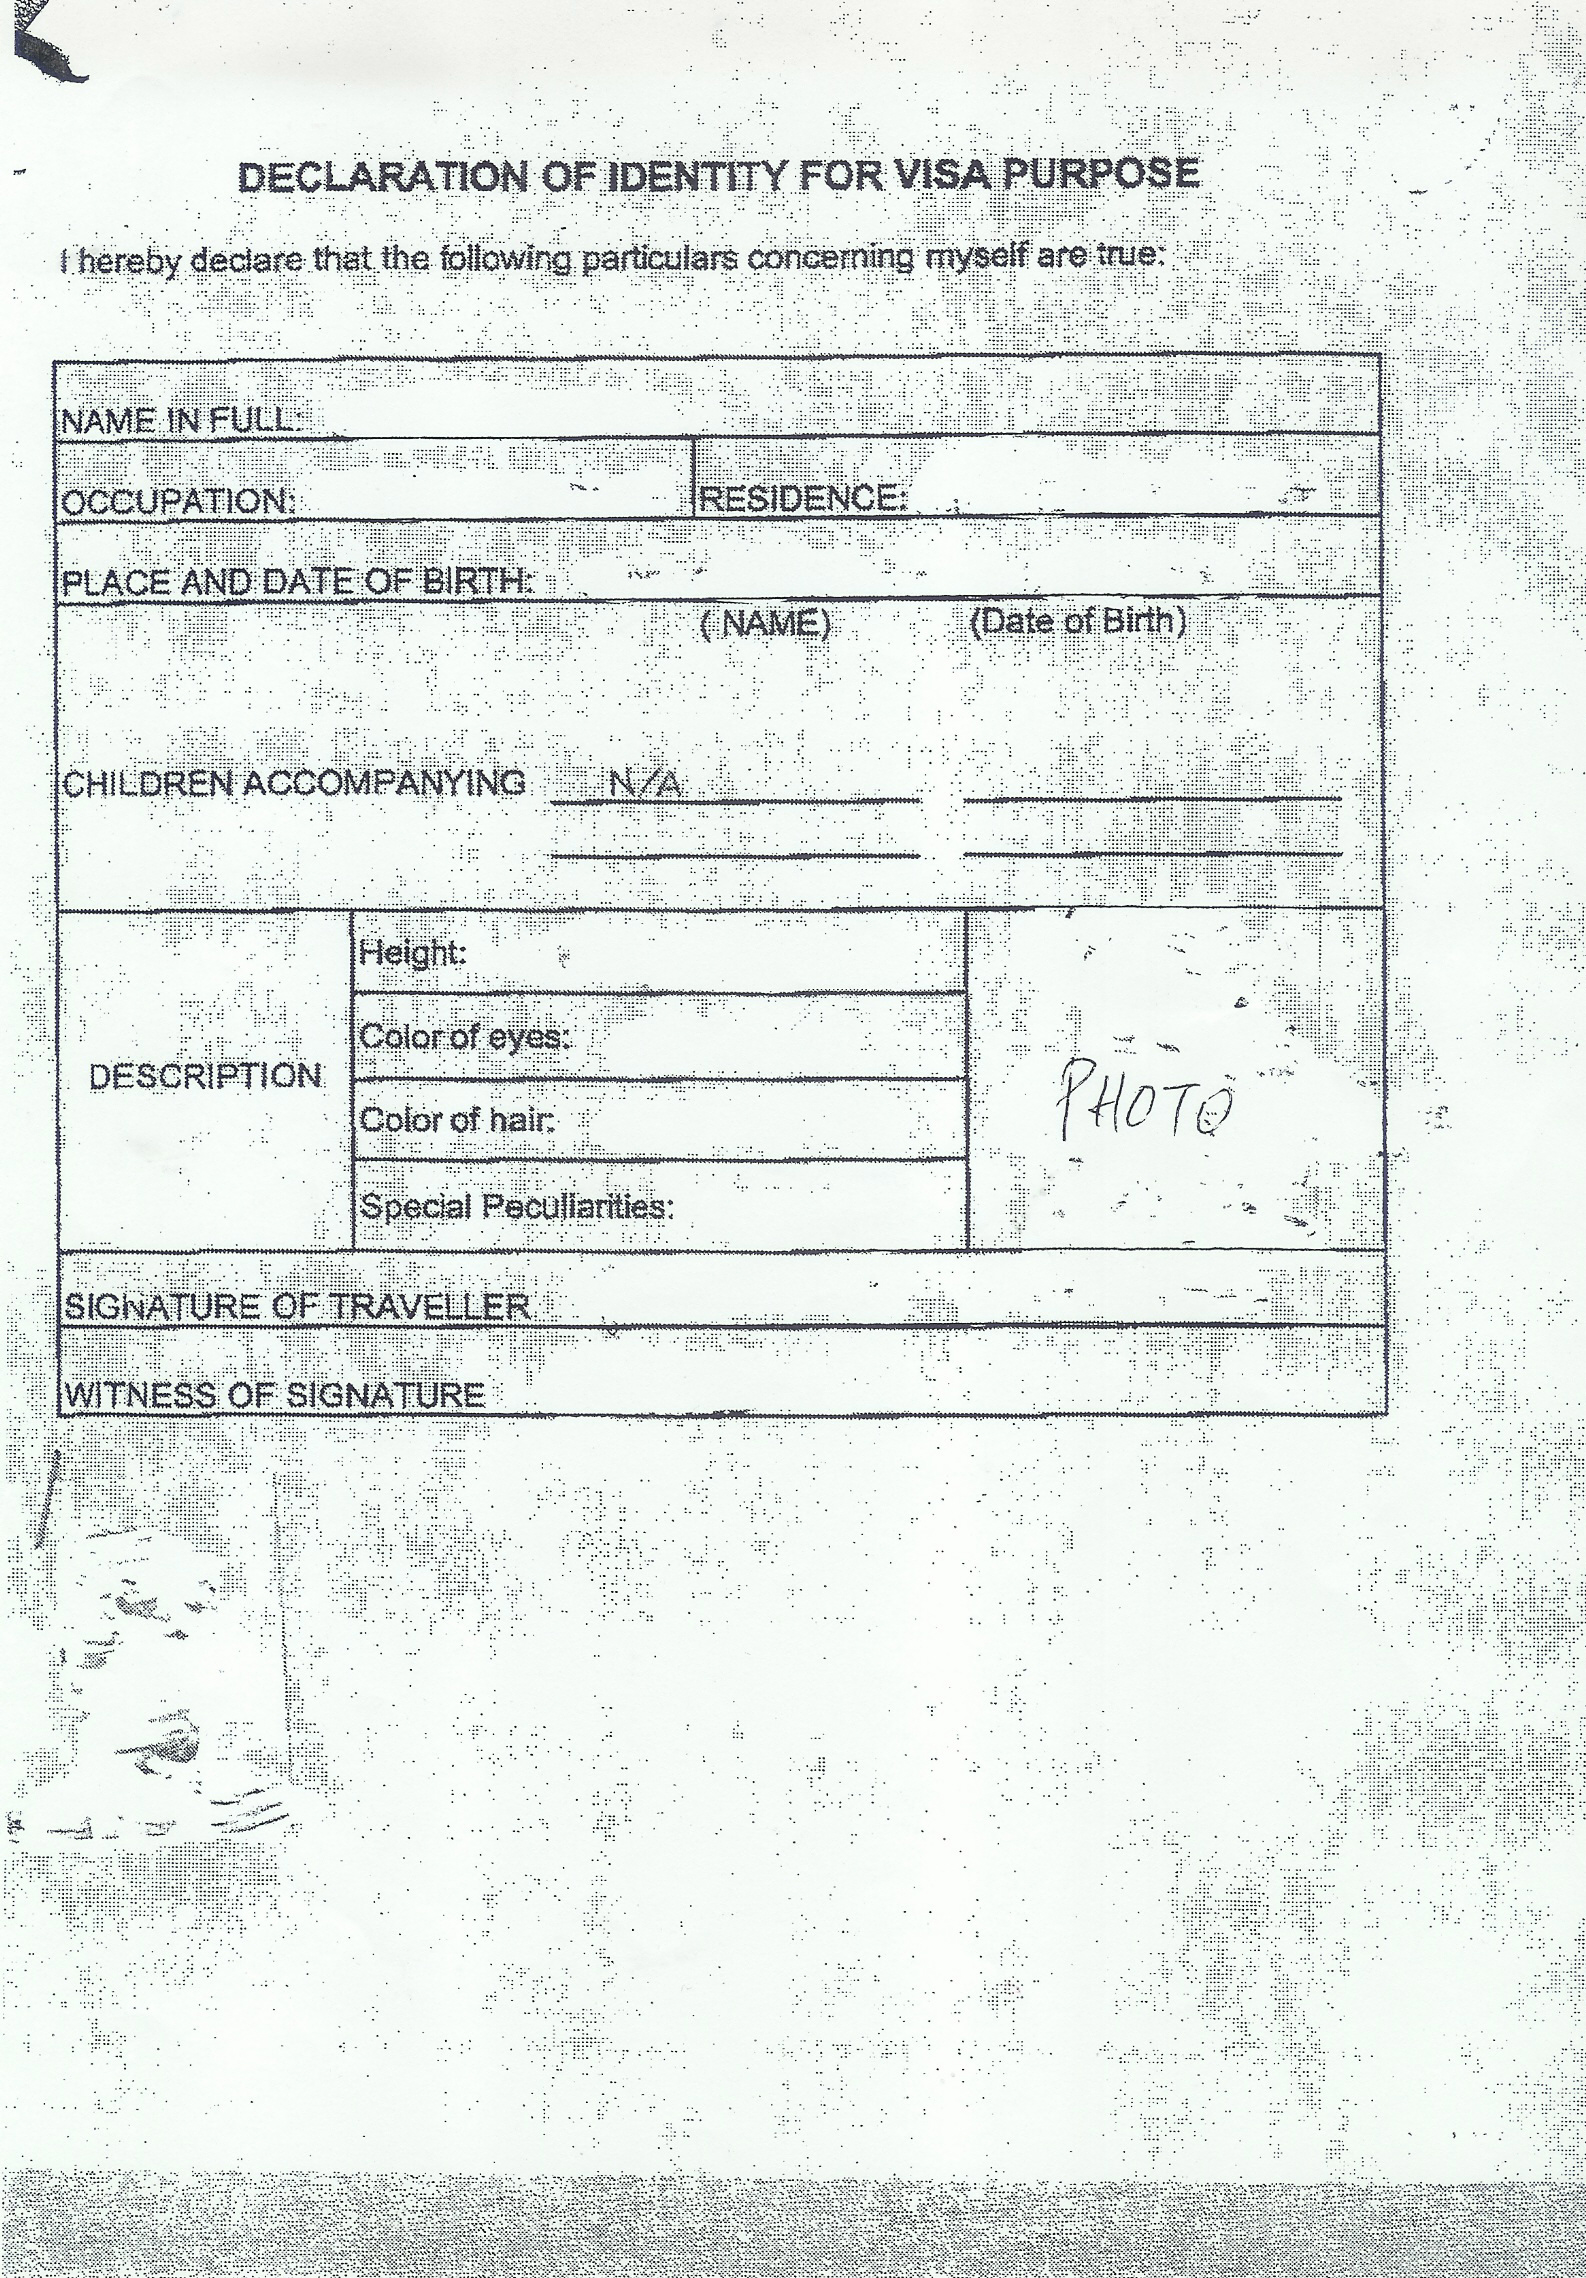 DECLARATION OF IDENTITY FOR VISA PURPOSE
I hereby declare that the following particulars concerning myself are true:
NAME IN FULL:
OCCUPATION: RESIDENCE:
PLACE AND DATE OF BIRTH:
( NAME) (Date of Birth)
CHILDREN ACCOMPANYING N/A
DESCRIPTION
Height:
Color of eyes:
Color of hair:
Special Peculiarities:
PHOTO
SIGNATURE OF TRAVELLER
WITNESS OF SIGNATURE